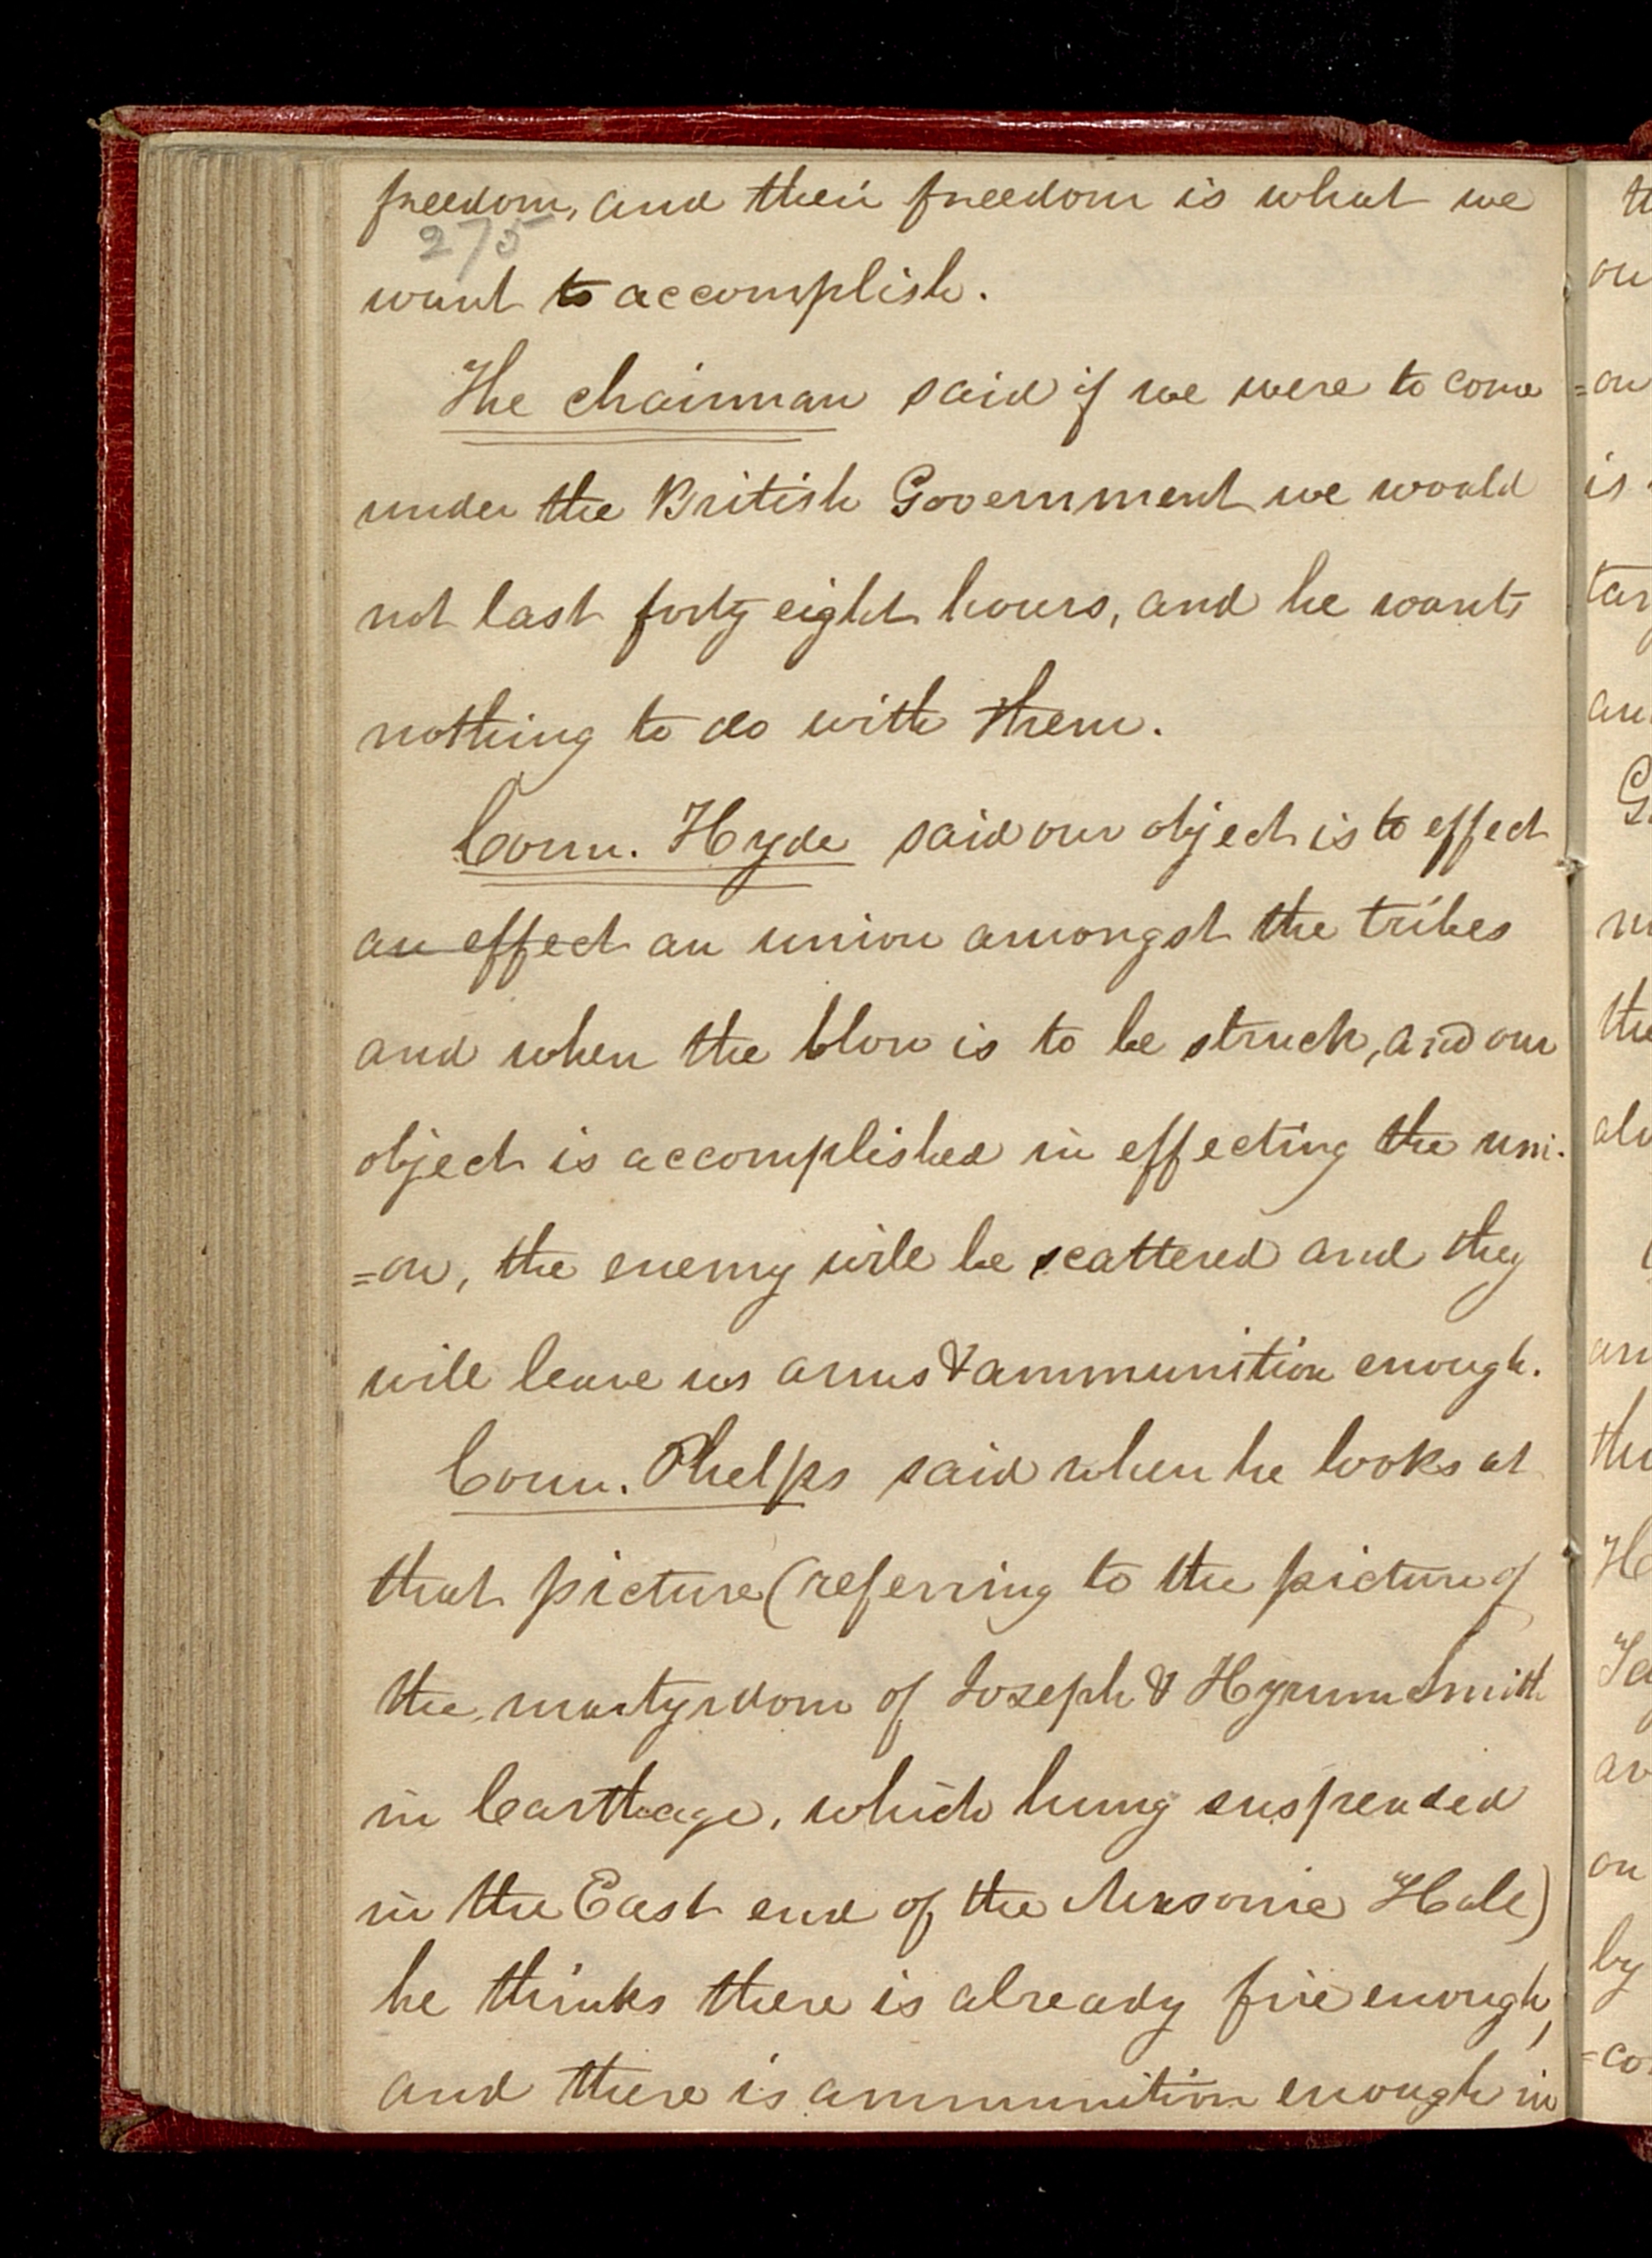 freedom, and their freedom is what we
275
want to accomplish.
The chairman said if we were to come
under the British Government we would
not last forty eight hours, and he wants
nothing to do with them.
Coun. Hyde said our object is to effect
an effect an union amongst the tribes
and when the blow is to be struck, and our
object is accomplished in effecting the uni-
=on, the enemy will be scattered and they
will leave us arms & ammunition enough.
Coun. Phelps said when he looks at
that picture (referring to the picture of
the martyrdom of Joseph & Hyrum Smith
in Carthage, which hung suspended
in the East end of the Masonic Hall)
he thinks there is already fire enough,
and there is ammunition enough in